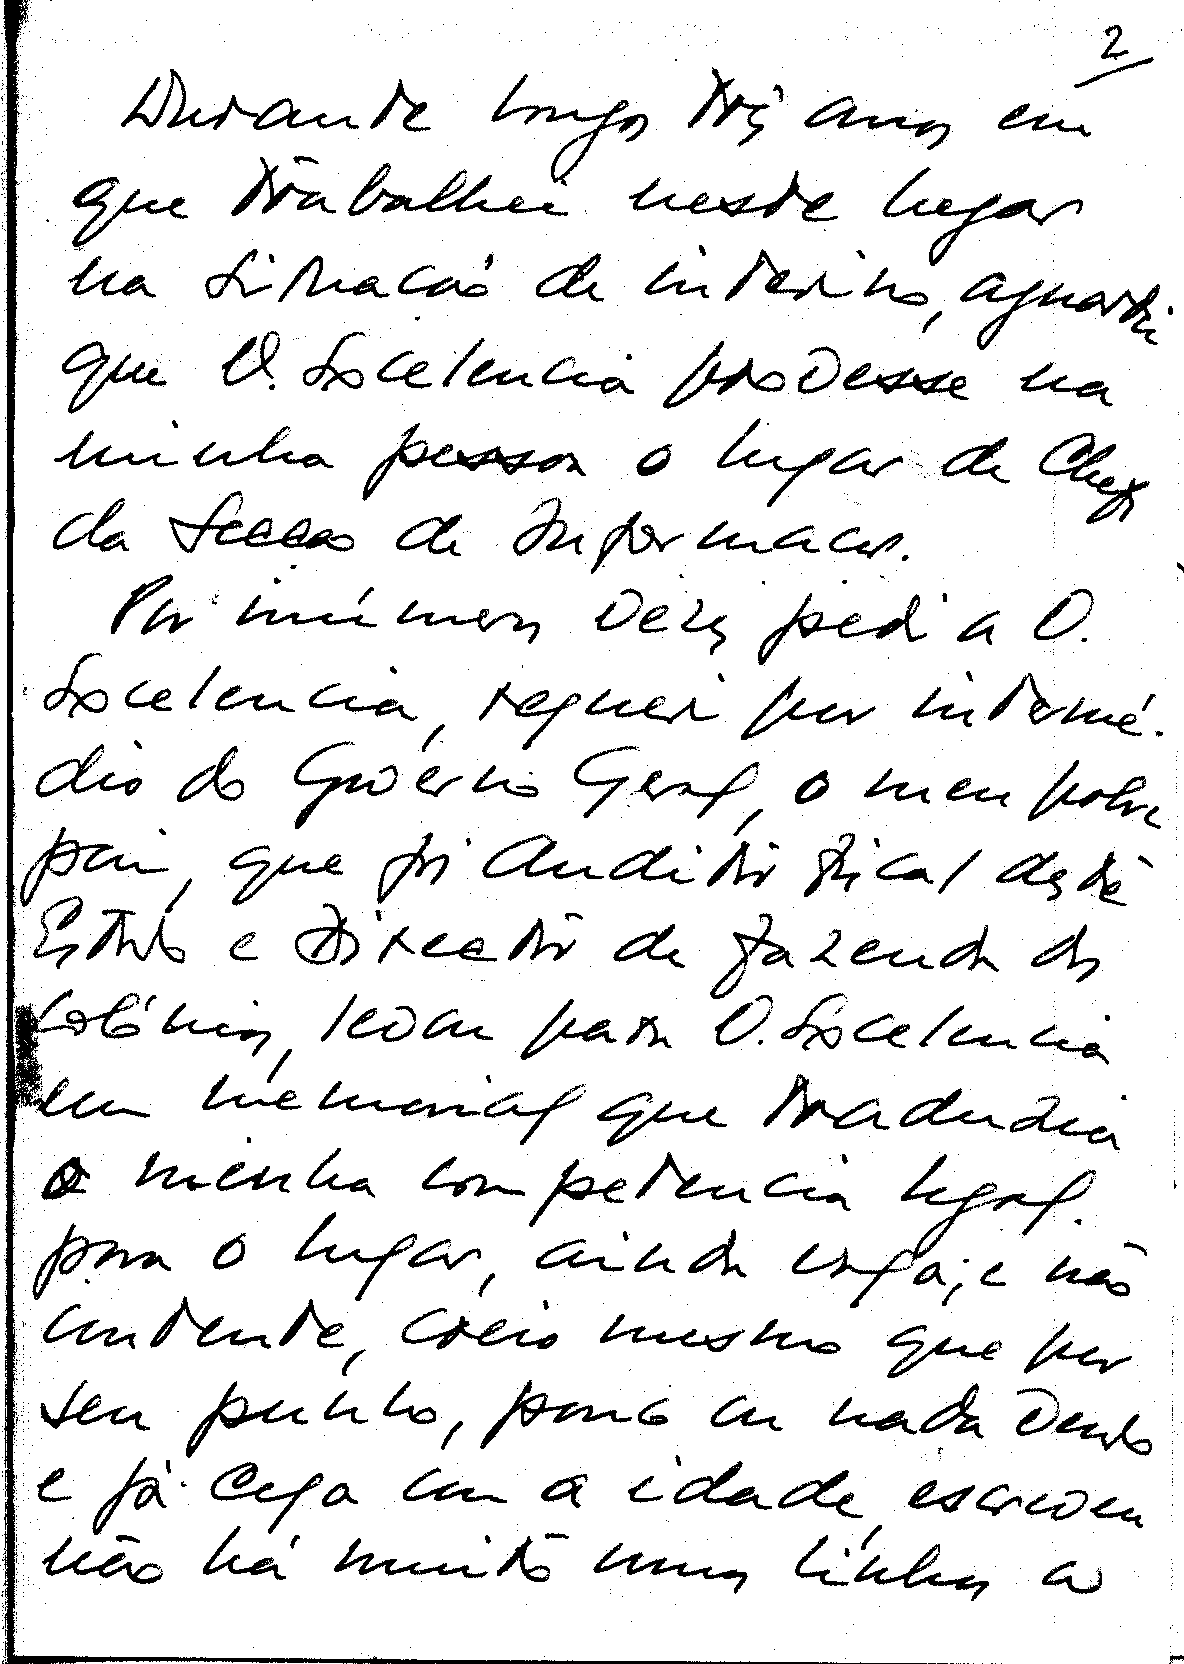 2
Durante longos três anos em
que trabalhei neste lugar
na situacão de interino, aguardei
que V. Excelencia provesse na
minha pessoa o lugar de Chefe
da Seccão de Informacões.
Por inúmeras vezes pedi a V.
Excelencia, requeri por intermé-
dio do Govêrno Geral, o meu pobre
pai, que foi Auditor Fiscal deste
Estado e Director de Fazenda das
Colónias, levou para V. Excelencia
um memorial que traduzia
a minha competencia legal
para o lugar, ainda vago; e não
contente, creio mesmo que por
seu punho, pouco ou nada vendo
e já cego com a idade, escreveu
não há muito umas linhas ao